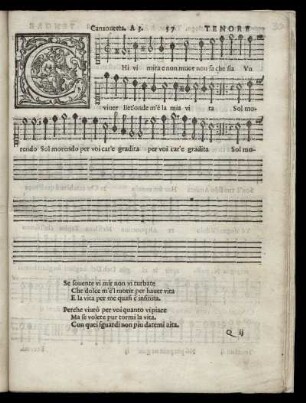 Canzonetta. A 3. 57 TENORE
C
HI vi mira e non more non sà che sia Vn
viuer liet'onde m'è la mia vi ta Sol mo-
rendo Sol morendo per voi car'e gradita per voi car'e gradita Sol mo-
Se souente vi mir non vi turbate
Che dolce m'è'l morir per hauer vita
E la vita per me quasi è infinita.
Perche viurò per voi quanto vi piace
Ma se volete pur tormi la vita.
Con quei sguardi non più datemi aita.
Q ij